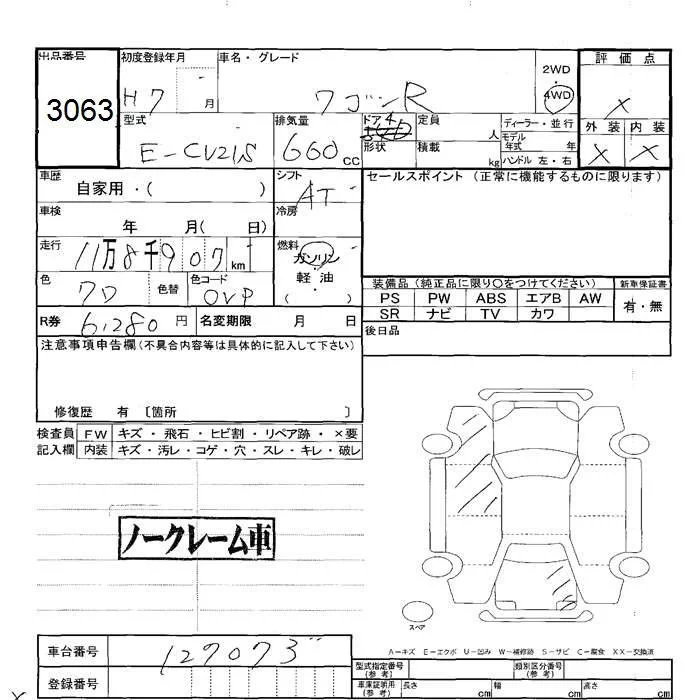 出品番号 初度登録年月 車名・グレード 2WD 評価点
3063 H7 月 ワゴンR 4WD X
型式 排気量 ドア 4 定員 人 ディーラー・並行 外装 内装
E-CV21S 660 CC 形状 積載 kg モデル年式 年 X X
ハンドル 左・右
車歴 自家用・( ) シフト AT セールスポイント (正常に機能するものに限ります)
車検 年 月( 日) 冷房
走行 11万8千907 km 燃料 ガソリン・
軽油
( )
色 色替 色コード OVP 装備品 (純正品に限り〇をつけてください) 新車保証書
PS PW ABS エアB AW 有・無
R券 6,280 円 名変期限 月 日 SR ナビ TV カワ
後日品
注意事項申告欄(不具合内容等は具体的に記入して下さい)
修復歴 有 〔箇所 〕
検査員 FW キズ・飛石・ヒビ割・リペア跡・×要
記入欄 内装 キズ・汚レ・コゲ・穴・スレ・キレ・破レ
ノークレーム車
スペア
A−キズ E−エクボ U−凹み W−補修跡 S−サビ C−腐食 XX−交換済
車台番号 127073
型式指定番号(参考) 類別区分番号(参考)
登録番号 車庫証明用(参考) 長さ cm 幅 cm 高さ cm
X